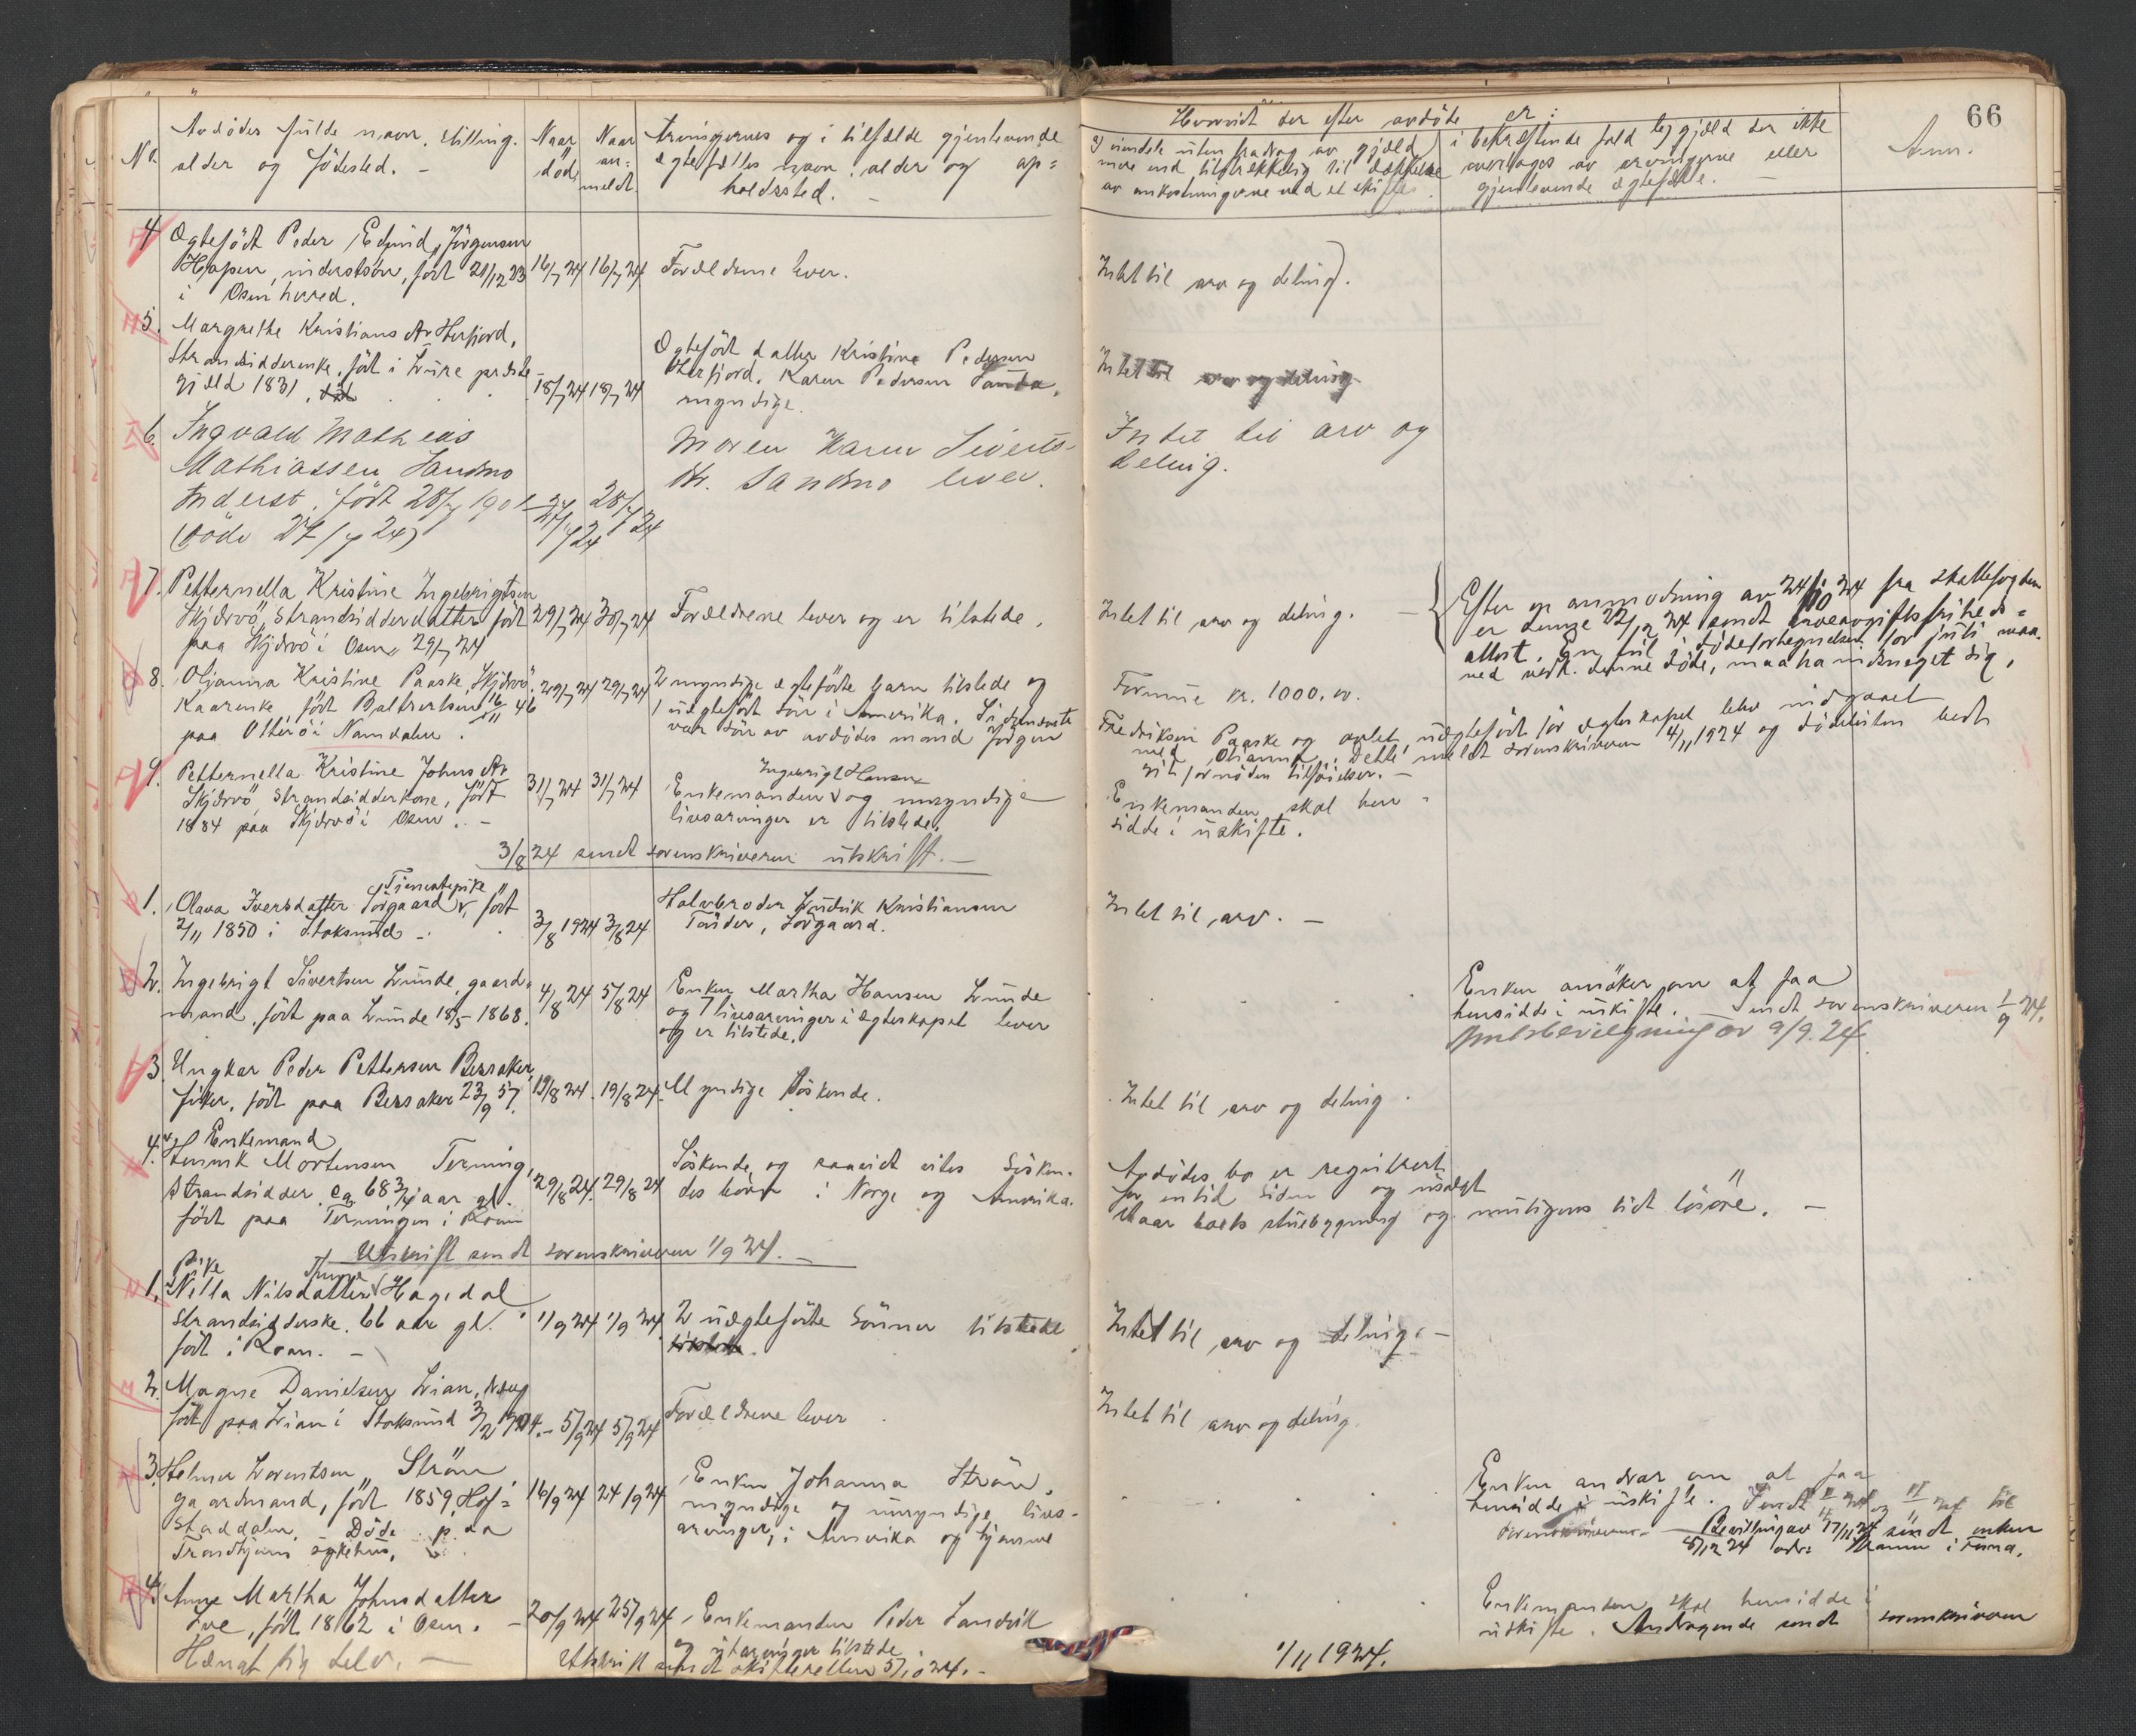 66
No.
Avdödes fulde navn, stilling,
alder og födested. -
Naar
död.
Naar
an=
meldt.
Arvingernes og i tilfælde gjenlevende
egtefælles navn, alder og op=
holdssted. -
Hvorvidt der efter avdöde er:
a) eiendele uten fradrag av gjæld
mere end tilstrækkelig til dækkelse
av omkostningerne ved et skifte
i bekræftende fald b) gjæld der ikke
overtages av arvingerne eller
gjenlevende egtefælle. -
Anm.
4 Egtefödt Peder Edvind Jörgensen
Hopen, inderstsön, född 21/12 23
i Osen herred.
16/7 24 16/7 24 Forældrene lever.
Intet til arv og deling.
5. Margrethe Kristiansdtr Herfjord,
Strandsidderenke, född i Lure præste-
gjæld 1831,
18/7 24 18/7 24
Egtefödt datter Kristine Pedersen
Herfjord. Karen Pedersen Sanda,
myndige.
Intet til arv og deling
6. Ingvald Mathias
Mathiassen Sandmo
Inderst, född 28/7 1901
(Döde 27/7 24)
27/7 24 28/7 24
Moren Karen Siverts-
dtr. Sandmo lever.
Intet til arv og
deling.
7. Petternella Kristine Ingebrigtsen
Skjervö, Strandsidderdatter född
paa Skjervö i Osen 29/7 24
29/7 24 30/7 24 Forældrene lever og er tilstede.
Intet til arv og deling. -
Efter en anmodning av 24/10 24 fra skattefogden
er denne 22/12 24 sendt arveavgiftsfriheds=
attest. En feil i dödsfortegnelsen for juli maa.
ved vedk. denne döde, maa ha indsneget sig.
8. Olianna Kristine Paaske, Skjervö
Kaarenke, född Baltsersen 16/11 46
paa Otterö i Namdalen.
29/7 24 29/7 24 2 myndige egtefödte barn tilstede og
1 uegtefödt sön i Amerika. Sidstnevnte
var sön av avdödes mand Jörgen
Formue kr. 1000.00.
Fredriksen Paaske og avlet uegtefödt för egteskapet blev indgaaet
med Olianna. Dette meldt sorenskriveren 14/11 1924 og dödslisten bedt
git fornöden tilföielser. -
9. Petternella Kristine Johnsdtr
Skjervö, Strandsidderkone, född
1884 paa Skjervö i Osen. -
31/7 24 31/7 24
Ingebrigt Hansen
Enkemanden og umyndige
livsarvinger er tilstede.
Enkemanden skal hen=
sidde i uskifte.
3/8 24 sendt sorenskriveren utskrift. -
1. Olava Iversdatter Sörgaard, Tjenestepike född
2/11 1850 i Stoksund -
3/8 1924 3/8 24
Halvbroder Fredrik Kristiansen
Taüder, Sörgaard.
Intet til arv. -
2. Ingebrigt Sivertsen Lunde, gaard=
mand, född paa Lunde 18/5 1868.
4/8 24 5/8 24
Enken Martha Hansen Lunde
og 7 livsarvinger i egteskapet lever
og er tilstede.
Enken ansöker om at faa
hensidde i uskifte. - Sendt sorenskriveren 1/9 24.
Amtsbevilgning av 9/9. 24
3. Ungkar Peder Pettersen Bessaker,
fisker, född paa Bessaker 23/9 57.
19/8 24. 19/8 24. Myndige söskende.
Intet til arv og deling.
4. Enkemand
Henrik Mortensen Terning,
Strandsidder, ca 68 3/4 aar gl.
född paa Terningen i Roan
29/8 24. 29/8 24
Söskende og saavidt vites sösken-
des börn i Norge og Amerika.
Avdödes bo er registrert
for en tid siden og usolgt
staar boets stuebygning og muligens lidt lösöre. -
Utskrift sendt sorenskriveren 1/9 24. -
1. Pike
Nilla Nilsdatter Hagedal
Strandsidderske. 66 aar gl.
född i Roan. -
1/9 24 1/9 24. 2 uegtefödte sönner tilstede
Intet til arv og deling. -
2. Magne Danielsen Lian,
född paa Lian i Stoksund 3/2 1924. - 5/9 24 5/9 24 Forældrene lever
Intet til arv og deling.
3. Helmer Lorentsen Ström
gaardmand, född 1859 Hof=
staddalen. - Döde paa
Trondhjems sykehus.
16/9 24 24/9 24
Enken Johanna Ström,
myndige og umyndige livs-
arvinger, i Amerika og hjemme
Enken andrar om at faa
hensidde i uskifte. Sendt og til
sorenskriveren - Bevilling av 17/11 24 sendt enken
5/12 24
4. Anne Martha Johnsdatter
Sve, född 1862 i Osen. -
Hængt sig selv. -
20/9 24 25/9 24 Enkemanden Peder Sandvik
og utarvinger tilstede
Enkemanden skal hensidde i
uskifte. Andragende sendt sorenskriveren
1/11 1924.
Utskrift sendt skifteretten 5/10 24. -